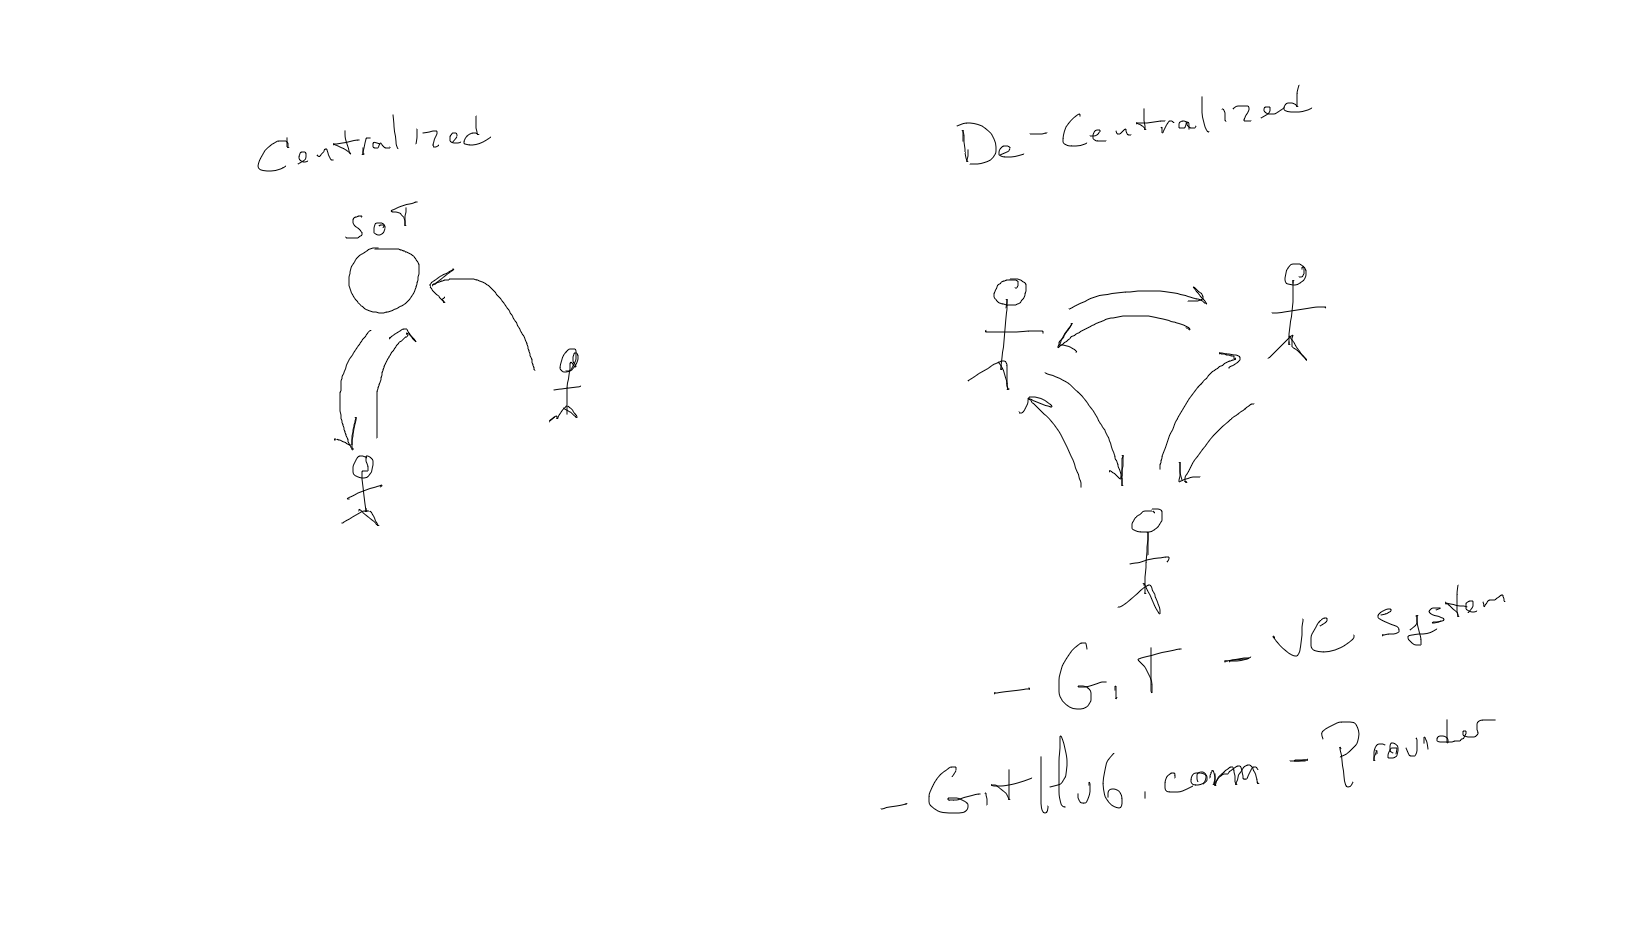 Centralized
SOT
De-Centralized
- Git - VC System
- GitHub.com - Provider